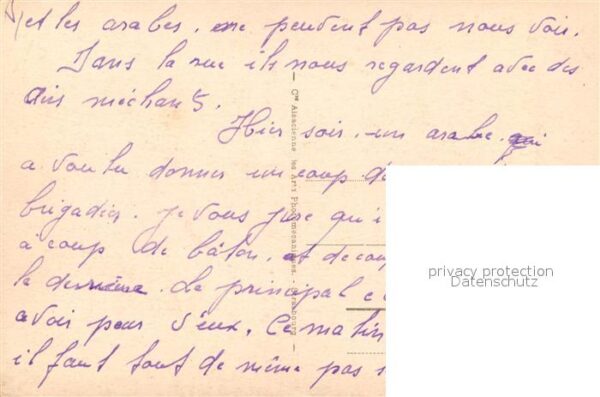 et les arabes. ne peuvent pas nous voir.
Dans la rue ils nous regardent avec des
airs méchants.
Hier soir. un arabe. qui
a voulu donner un coup de
brigadier. je vous jure qu'i
à coup de bâton. et de coup
le derrière. Le principal c
avoir peur d'eux. Ce matin
il faut tout de même pas
Cie Alsacienne des Arts Photomécaniques, Strasbourg
privacy protection
Datenschutz